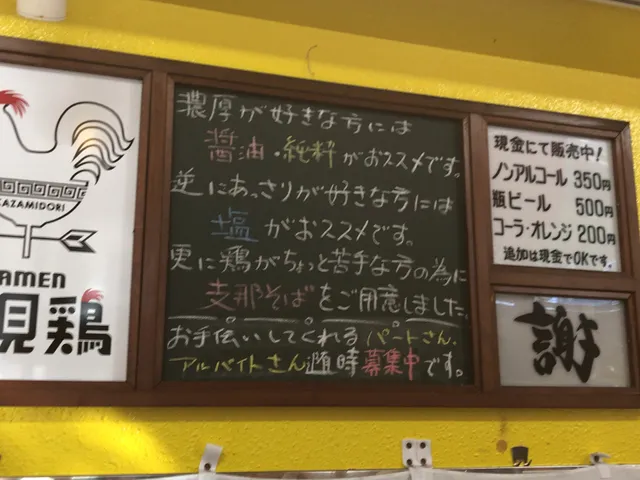 KAZAMIDORI
RAMEN
見鶏
濃厚が好きな方には
醤油・純粋がおススメです。
逆にあっさりが好きな方には
塩がおススメです。
更に鶏がちょっと苦手な方の為に
支那そばをご用意しました。
お手伝いしてくれるパートさん、
アルバイトさん随時募集中です。
現金にて販売中!
ノンアルコール 350円
瓶ビール 500円
コーラ・オレンジ 200円
追加は現金でOKです。
謝